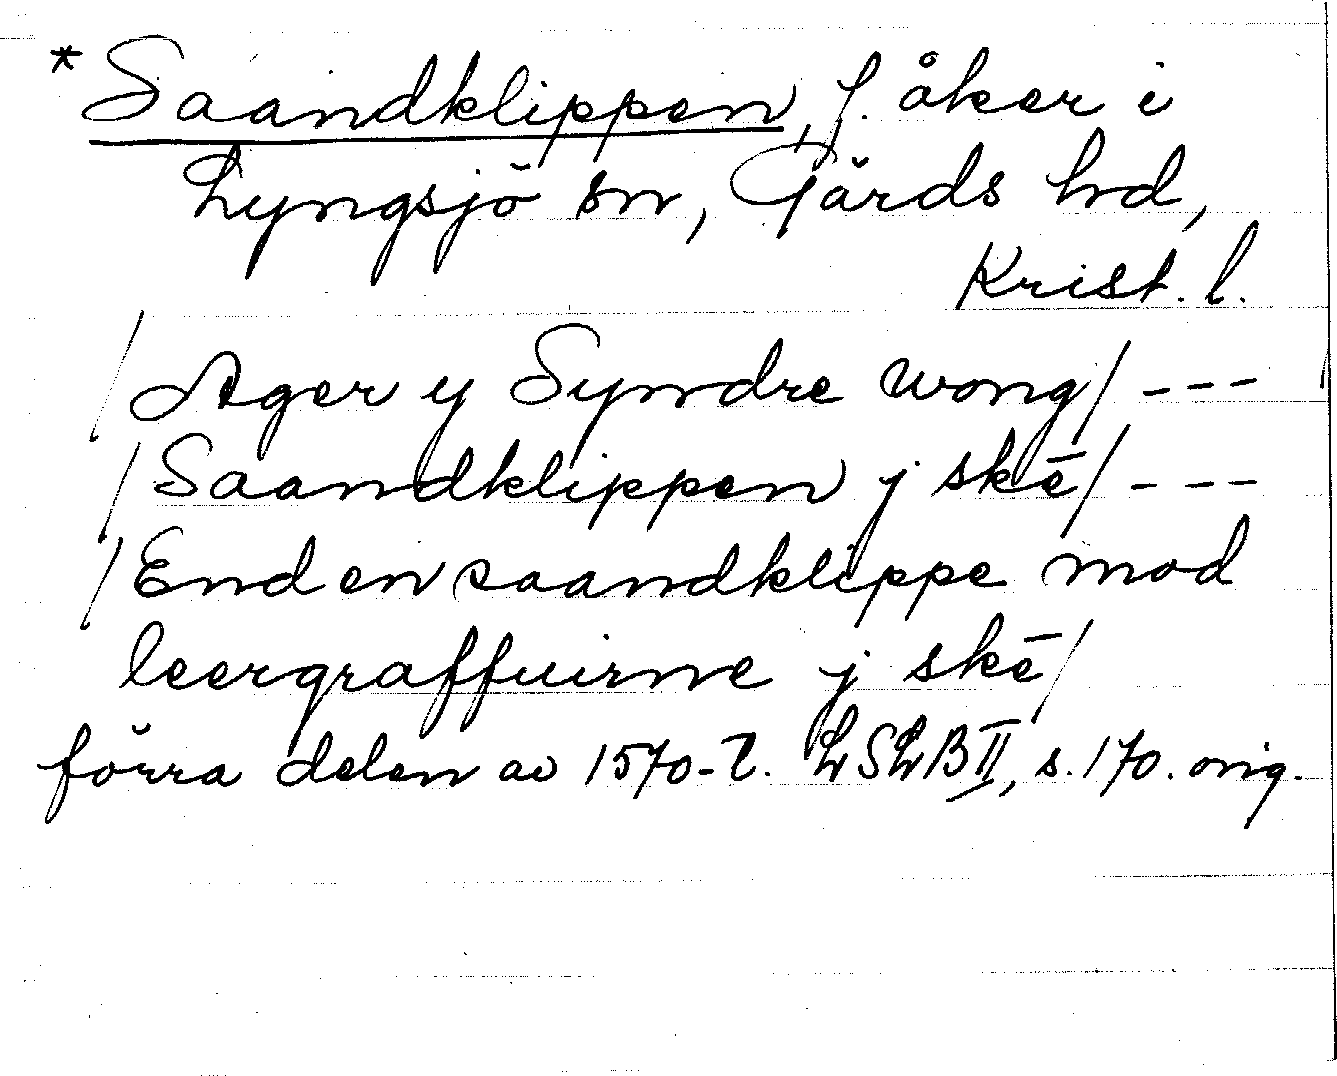 *Saandklippen, f. åker i
Lyngsjö sn, Gärds hd,
Krist. l.
/Ager y Syndre wong/ ---
/Saandklippen j skē/ ---
/End en saandklippe mod
leergraffuirne j skē/
förra delen av 1570-t. LSLB II, s. 170. orig.